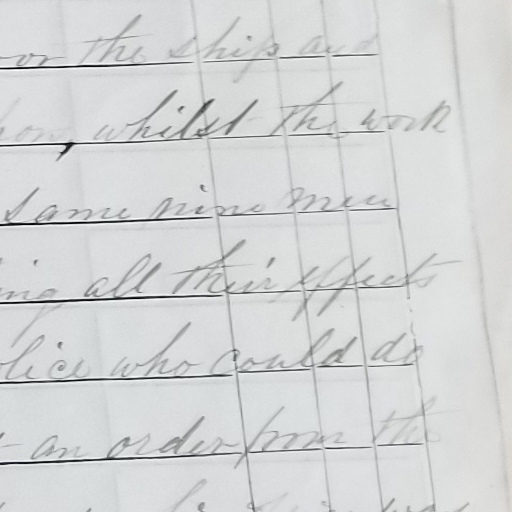 or the ship and
whilst the work
same nine men
ing all their effects
olice who could do
an order from the